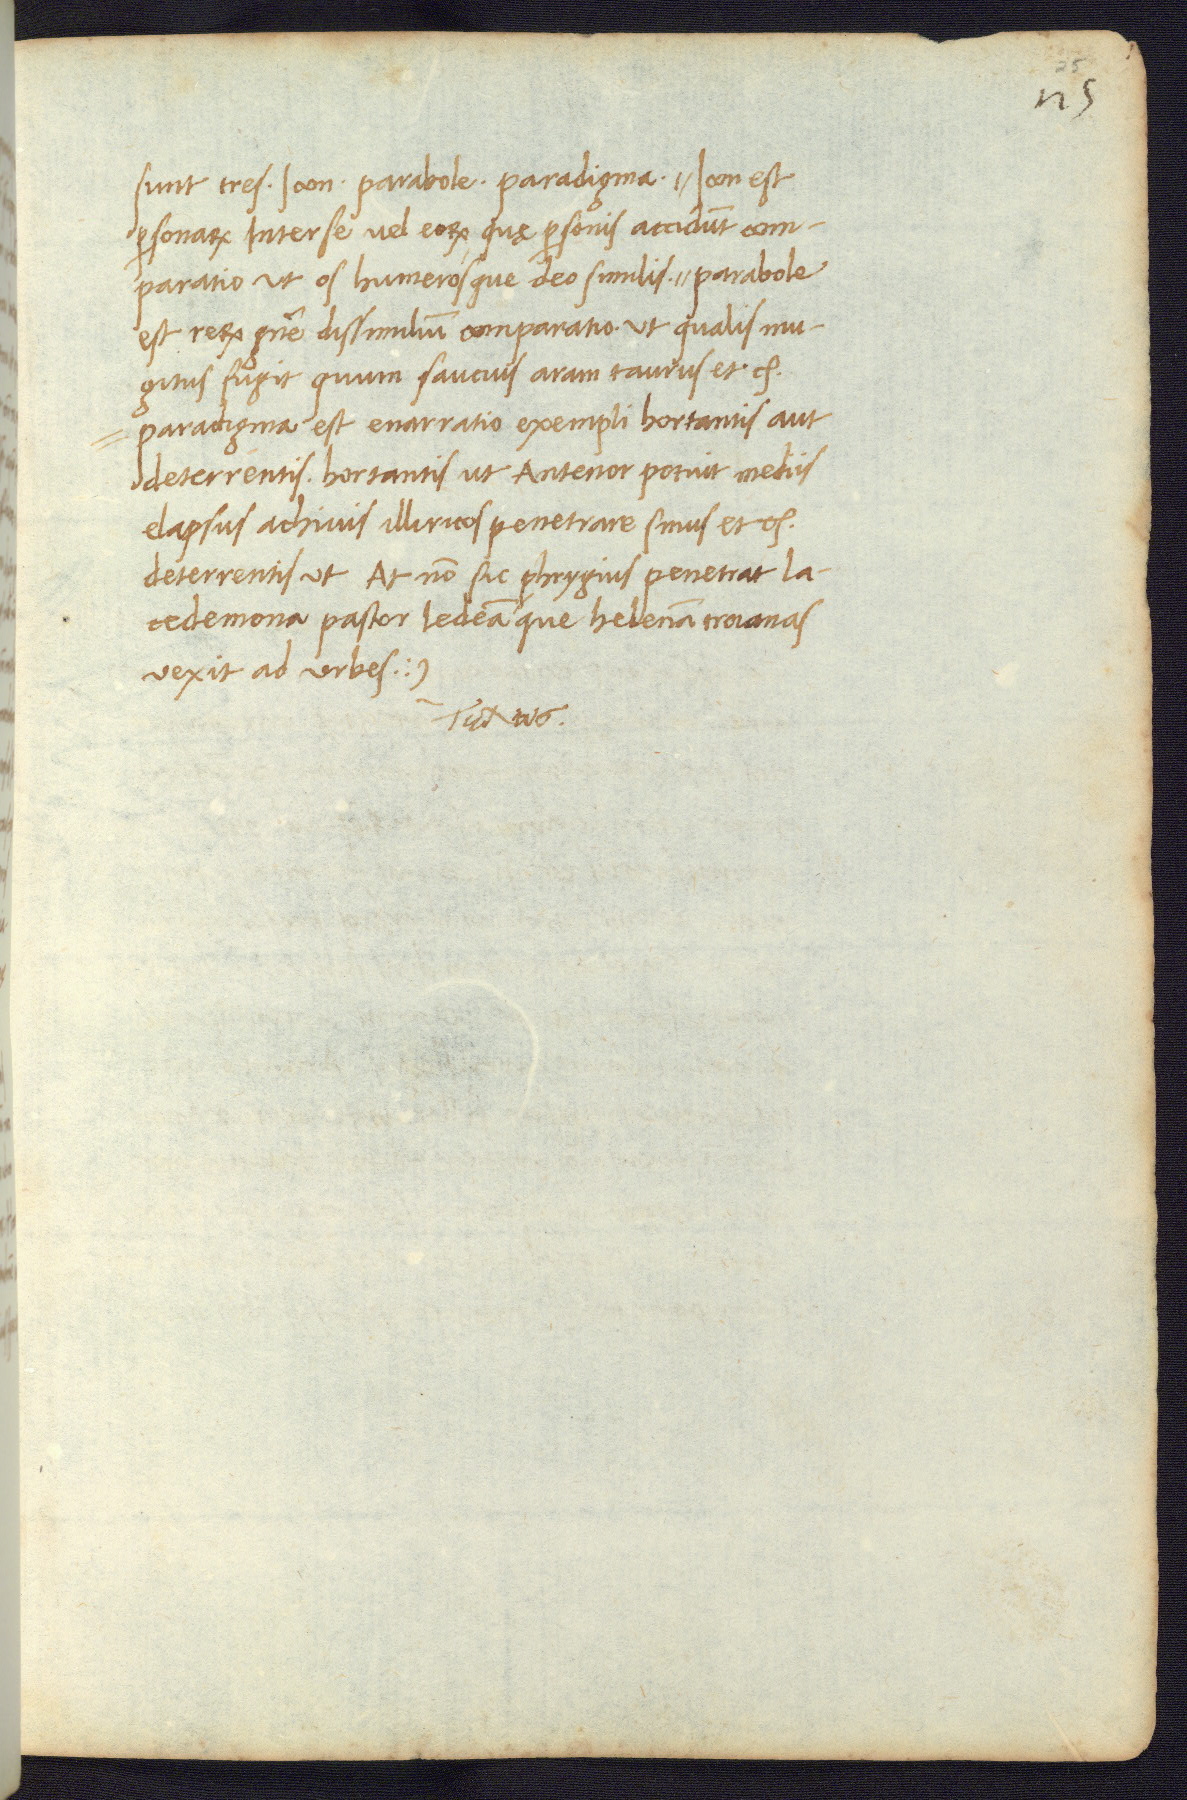 25
25
sunt tres. Icon. parabole. paradigma. // Icon est
ꝑsonaꝝ Inter se uel eoꝝ quę ꝑsonis accidūt com-
paratio ut os humerosque deo similis. // parabole
est reꝝ gn̄e dissimiliū comparatio. ut qualis mu-
gitus fugit quum saucius aram taurus et c̃.
paradigma est enarratio exempli hortantis aut
deterrentis. hortantis ut Antenor potuit mediis
elapsus achiuis illiricos penetrare sinus et c̃.
deterrentis ut At nō sic phrygius penetrat la-
cedemona pastor ledeāque helenā troianas
vexit ad urbes. :)